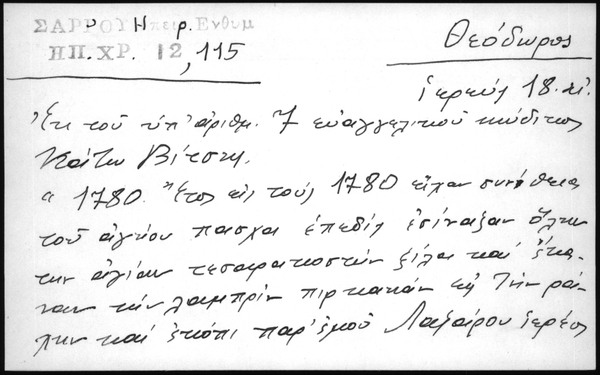 ΣΑΡΡΟΥ Ηπειρ. Ενθυμ
ΗΠ. ΧΡ. 12, 115
Θεόδωρος
ἱερεύς 18. αἰ.
Ἐκ τοῦ ὑπ' ἀριθμ. 7 εὐαγγελικοῦ κώδικος
Κάτω Βίτσης.
α 1780. Ἔτος εἰς τούς 1780 εἶχαν συνήθεια
τοῦ ἁγίου πασχα ἐπεδὶς ἐσίναξαν ὅλην
την ἁγίαν τεσαρακοστὴν ξίλα καί ἔκα-
ναν τὴν λαμπρὶν πιρκακάν
καί ἐκόπι παρ' ἐμοῦ Λαζάρου ἱερέος